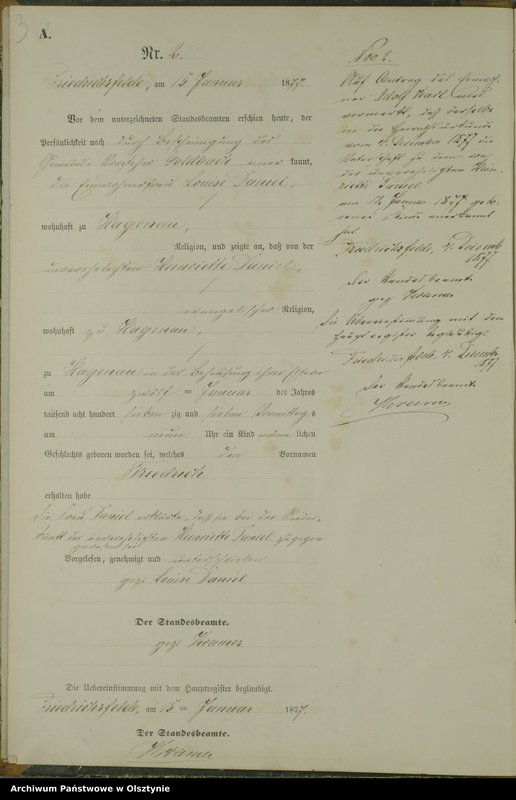 A.
Nr. 2.
Friedrichsfelde, am 15 Januar 1877.
Vor dem unterzeichneten Standesbeamten erschien heute, der
Persönlichkeit nach durch Bescheinigung des
Gemeinde Vorsteher kannt,
die Einwohnerfrau Louise Daniel,
wohnhaft zu Hagenau,
Religion, und zeigte an, daß von der
unverehelichten Henriette Daniel,
evangelischer Religion,
wohnhaft zu Hagenau,
zu Hagenau in der Behausung ihrer Eltern
am zwölf ten Januar des Jahres
tausend acht hundert sieben zig und sieben Vormittag s
um neun Uhr ein Kind männ lichen
Geschlechts geboren worden sei, welches den Vornamen
Friedrich
erhalten habe
Die Frau Daniel erklärte, daß sie bei der Nieder-
kunft der unverehelichten Henriette Daniel zugegen
gewesen sei
Vorgelesen, genehmigt und unterschrieben
gez. Louise Daniel
Der Standesbeamte.
gez. Kramer
Die Uebereinstimmung mit dem Hauptregister beglaubigt.
Friedrichsfelde, am 15 ten Januar 1877.
Der Standesbeamte.
Kramer
No 2.
Auf Antrag des Einwoh-
ner Adolf wird
vermerkt, daß derselbe
in der
vom 4. Dezember 1877 die
Vaterschaft zu dem von
der unverehelichten Hen-
riette Daniel
am 12 Januar 1877 gebo-
renen Kinde anerkannt
hat
Friedrichsfelde, 4. Dezemb.
1877
Der Standesbeamte
gez. Kramer
Die Übereinstimmung mit dem
Hauptregister beglaubigt.
Friedrichsfelde, 4. Dezemb.
1877
Der Standesbeamte
Kramer
Archiwum Państwowe w Olsztynie